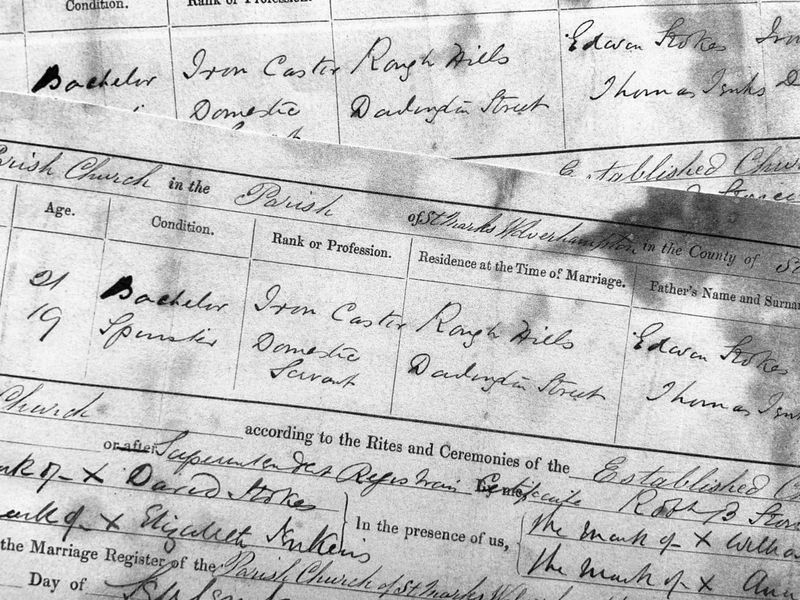 Condition. Rank or Profession.
Bachelor Iron Caster Rough Hills Edwin Stokes Iron
Domestic Dadington Street Thomas Jenks
Established Church
Parish Church in the Parish of St Marks Wolverhampton in the County of St
Age. Condition. Rank or Profession. Residence at the Time of Marriage. Father's Name and Surna
21 Bachelor Iron Caster Rough Hills Edwin Stokes
19 Spinster Domestic Dadington Street Thomas Jenk
Servant
Church according to the Rites and Ceremonies of the Established C
or after Superintendent Registrars Certificate
mark of X David Stokes In the presence of us, the mark of X Willia
mark of X Elizabeth Jenkins the mark of X Ann
the Marriage Register of the Parish Church of St Marks
Day of